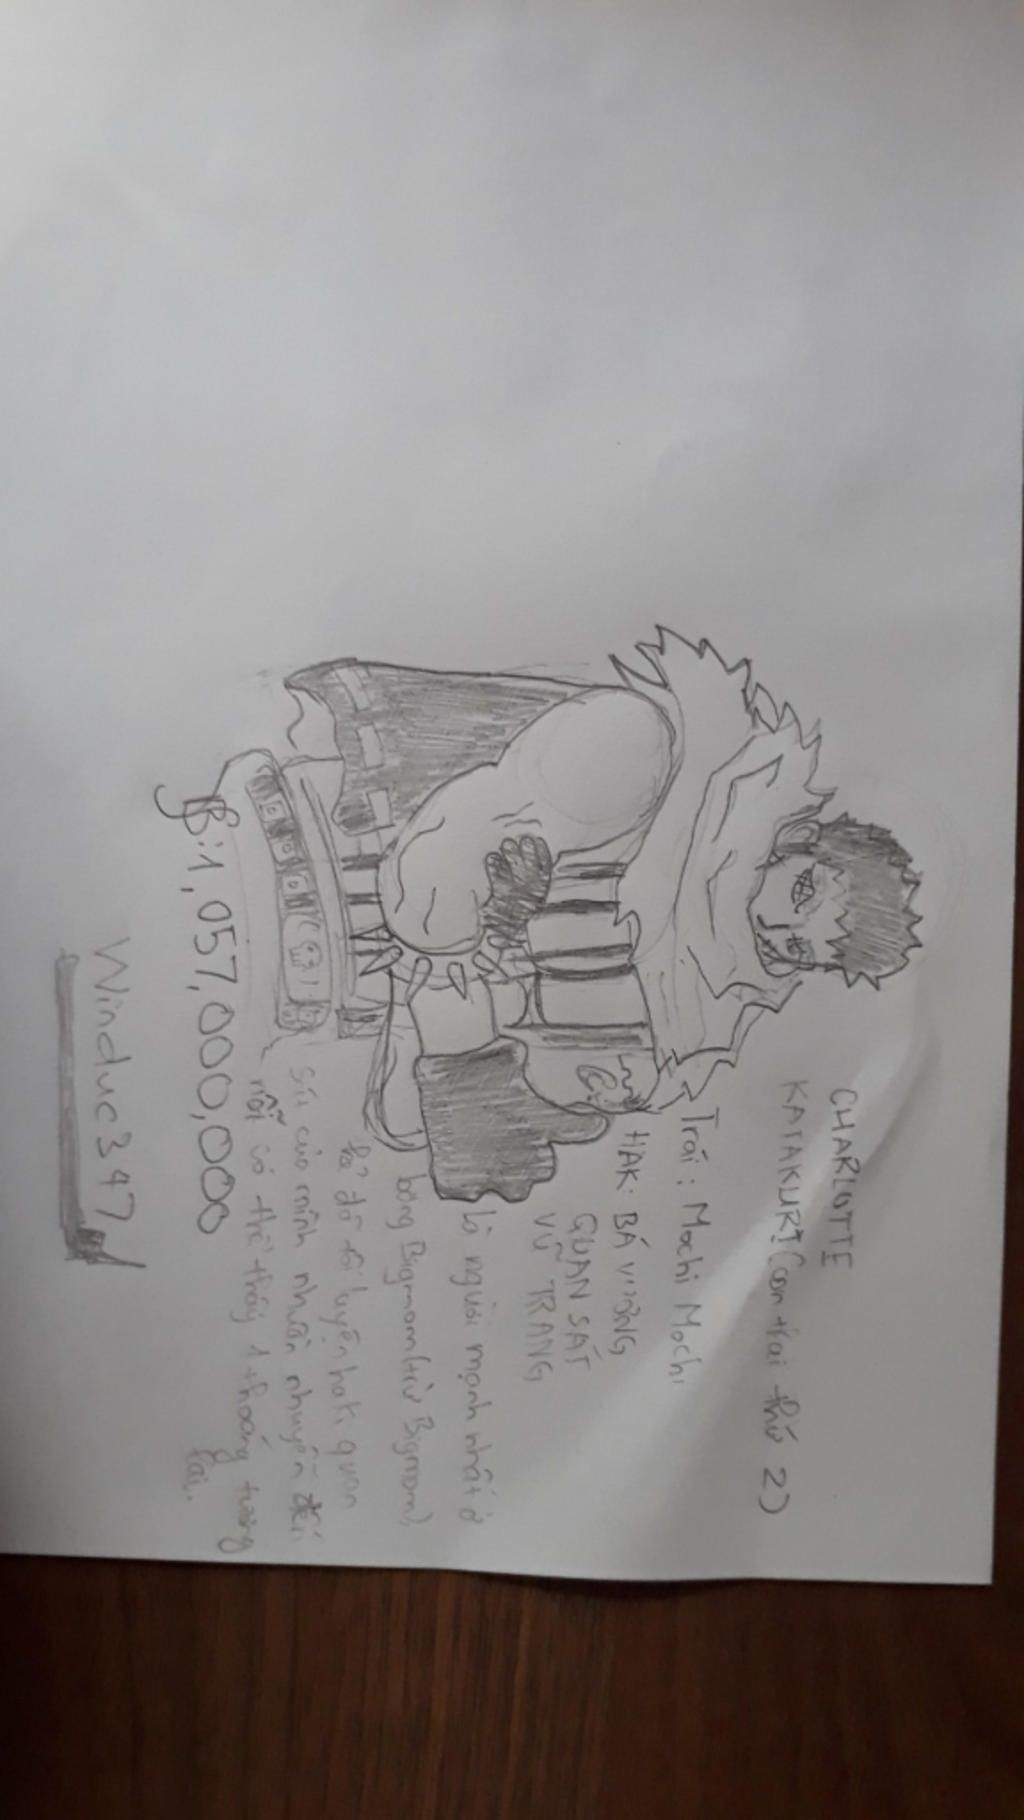 CHARLOTTE
KATAKURI (con trai thứ 2)
Trái: Mochi Mochi
HAK: BÁ VƯƠNG
QUAN SÁT
VŨ TRANG
Là người mạnh nhất ở
băng Bigmom (trừ Bigmom),
đã tôi luyện haki quan
sát của mình nhuần nhuyễn đến
nỗi có thể thấy 1 thoáng tương
lai.
฿:1,057,000,000
Winduc3497